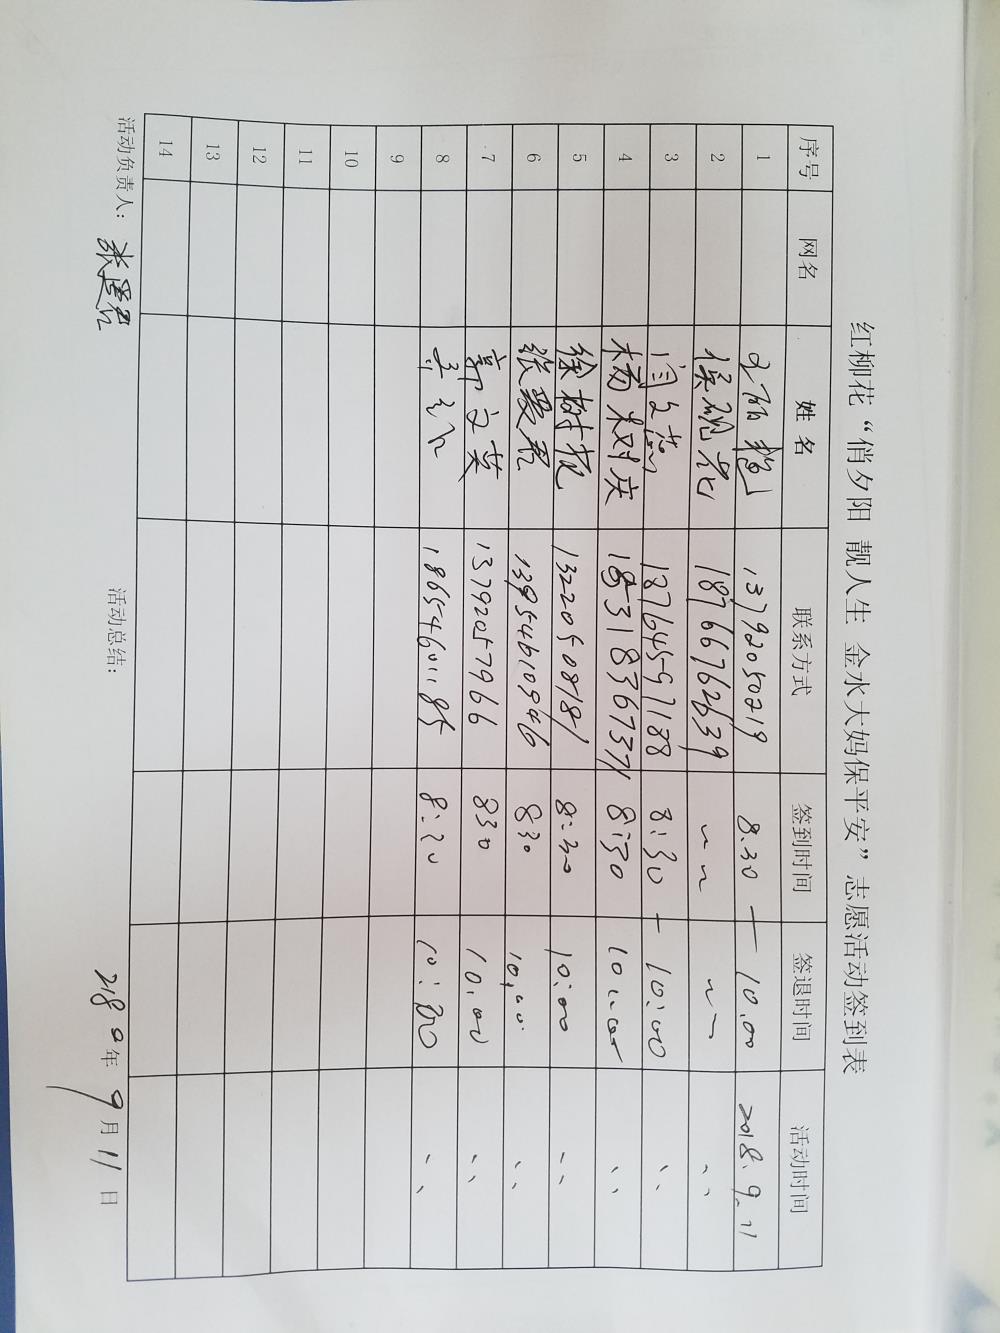 红柳花“俏夕阳 靓人生 金水大妈保平安”志愿活动签到表
序号 网名 姓名 联系方式 签到时间 签退时间 活动时间
1 13792050219 8.30 — 10.00 2018.9.11
2 侯砚花 18766762639 〃 〃 〃
3 闫文茹 18764597188 8:30 — 10:00 〃
4 杨树庆 18531836737 8:30 10:00 〃
5 徐树花 13220508781 8:30 10:00 〃
6 张爱君 13954610946 830 10,00 〃
7 郭文英 13792057966 830 10.00 〃
8 18654601185 8:30 10:00 〃
9
10
11
12
13
14
活动负责人： 张爱君 活动总结： 2018年9月11日